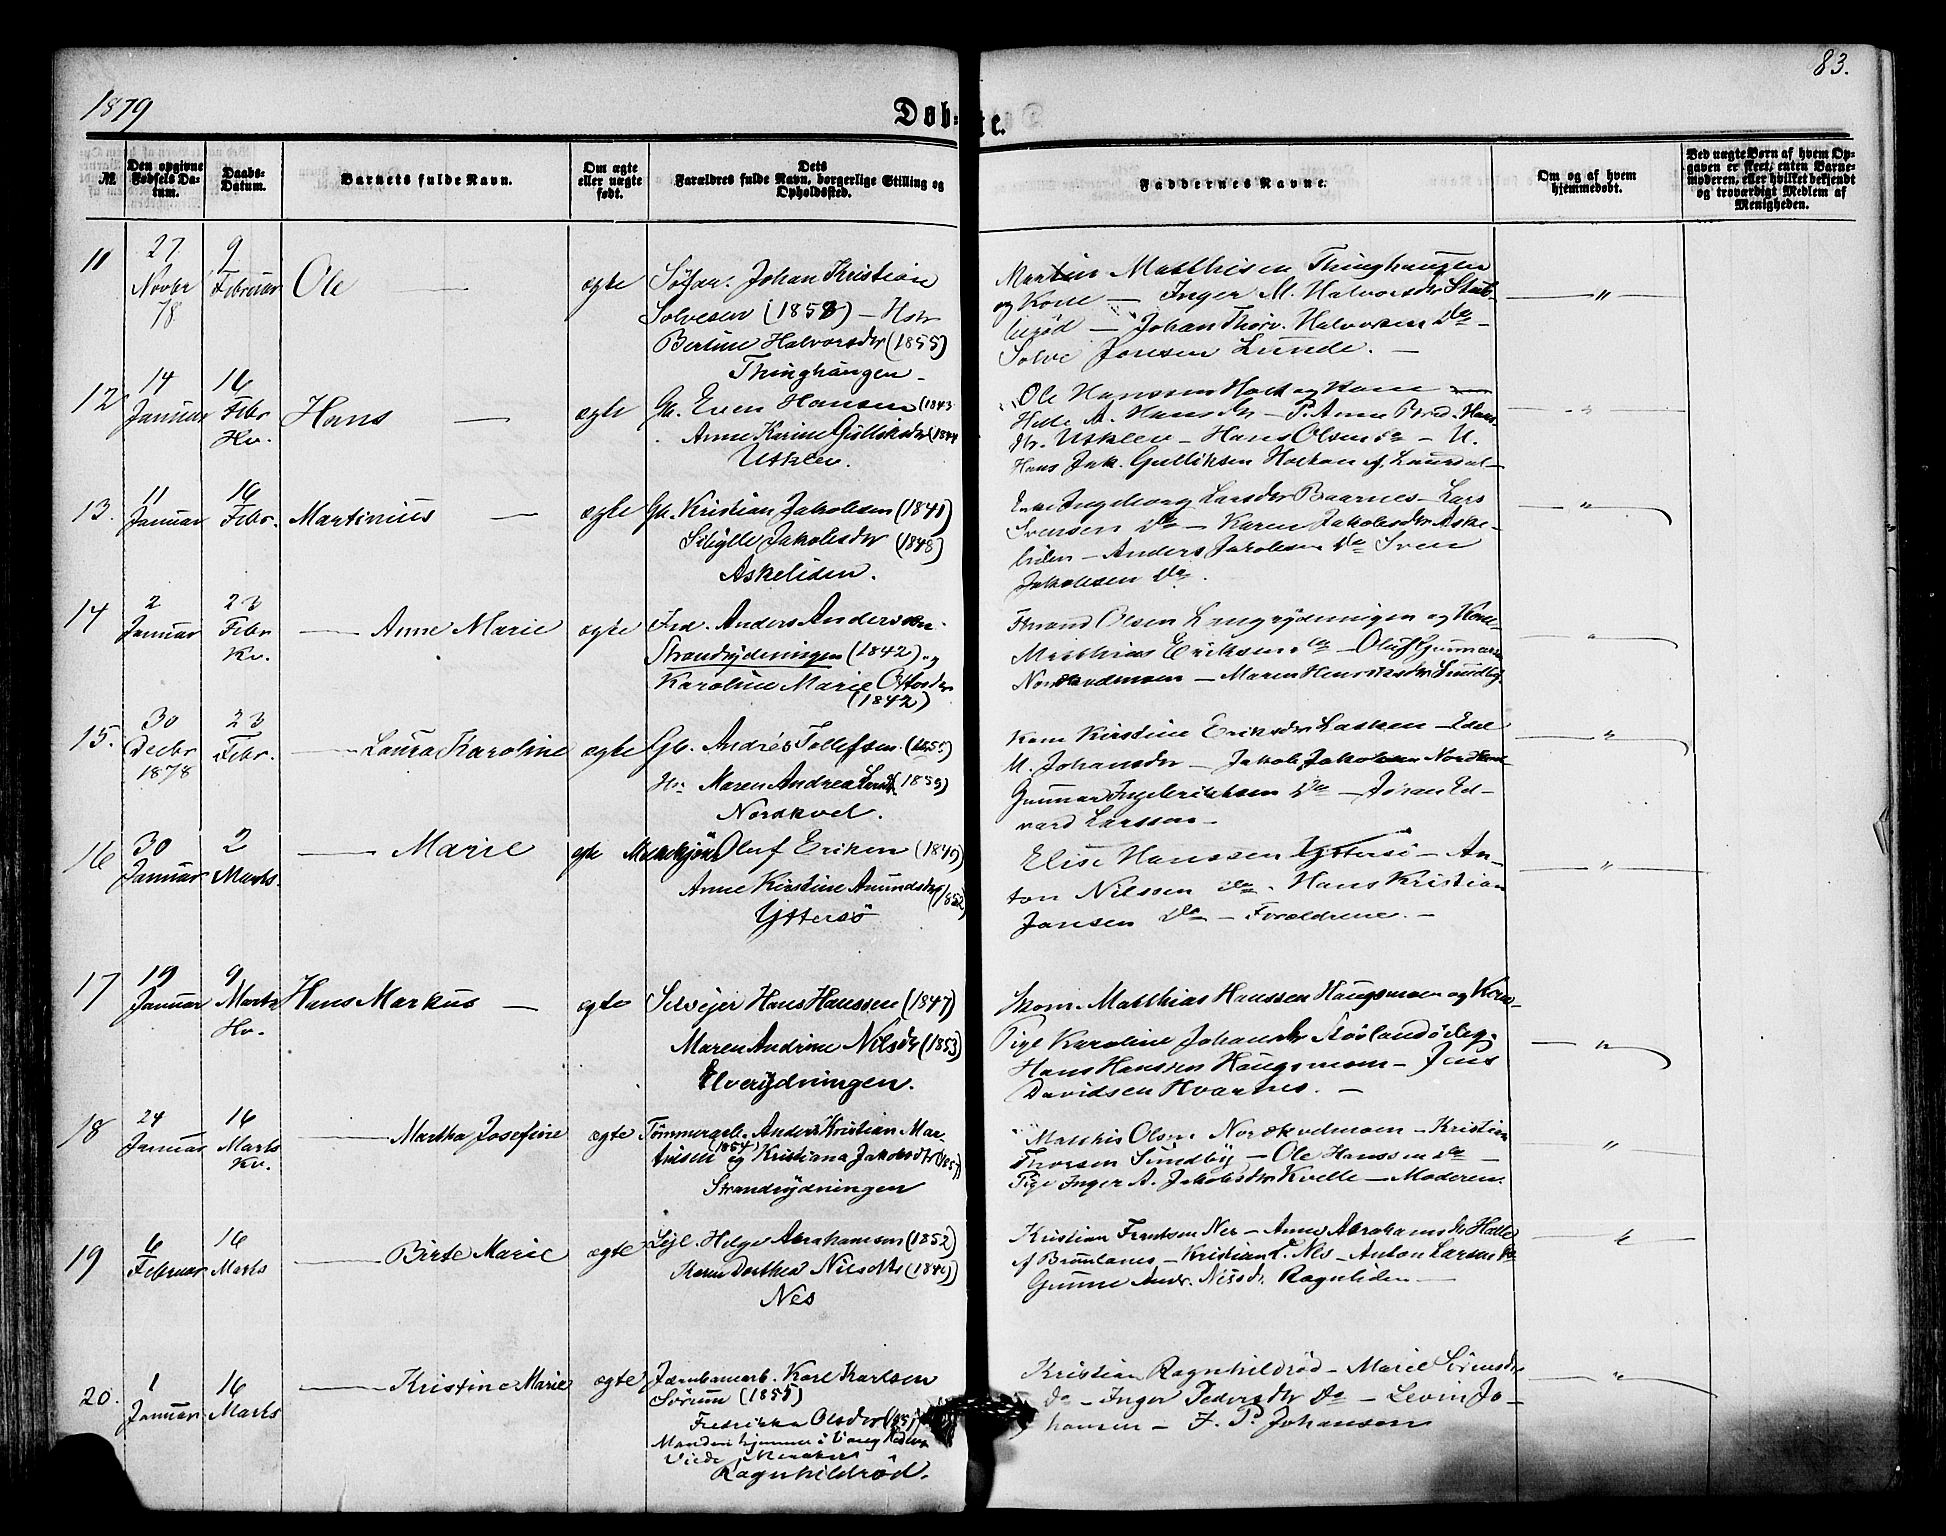 1879
83.
Døb-te.
№
Den opgivne Fødsels Datum.
Daabs-Datum.
Barnets fulde Navn.
Om ægte eller uægte født.
Dets Forældres fulde Navn, borgerlige Stilling og Opholdssted.
Faddernes Navne.
Om og af hvem hjemmedøbt.
Ved uægte Børn af hvem Opgaven er skeet; enten Barnemoderen, eller hvilket bekjendt og troværdigt Medlem af Menigheden.
11
27 Novbr 78
9 Februar
Ole —
ægte
Johan Kristian
Solvesen
Bertine Halvorsdtr (1855)
Thinghaugen
Martin Matthisen Thinghaugen
og Kone — Inger M. Halvorsdtr
— Johan Thorv. Halvorsen do —
Solve Jonsen Lunde. —
"
12
14 Januar
16 Febr Hv.
Hans —
ægte
Gb. Even Hansen (1843
Anne Karine Gulliksdtr (1844
Utklev.
Ole Hanssen Holt og Kone
Helle A. Hansdtr — P. Anne
Utklev — Hans Olsen do — U.
Hans Jak. Gulliksen Holtan af Laurdal —
"
13.
11 Januar
16 Febr.
Martinius —
ægte
Gb. Kristian Jakobsen (1841)
Sibylle Jakobsdtr (1848)
Askeliden.
Enke Ingeborg Larsdtr Baarnes — Lars
Svensen do — Karen Jakobsdtr Aske-
liden — Anders Jakobsen do Sven
Jakobsen do.
"
14
2 Januar
23 Febr Kv.
— Anne Marie
ægte
Ind. Anders Anderssen
Strandrydningen (1842) og
Karoline Marie Olsdtr
(1842)
Olsen Langrydningen og Kone
Matthias Eriksen do — Oluf Gunnars
Nordkvelmoen — Maren Henriksdtr
"
15.
30 Decbr 1878
23 Febr.
— Laura Karoline
ægte
Gb. Andrés Tollefsen
Hu Maren Andrea (1859)
Nordkvel.
Kone Kirstine Eriksdtr — Edel
M. Johansdtr — Jakob Jakobsen
Gunnar Ingebrektsen do — Johan Ed-
vard Larssen —
"
16
30 Januar
2 Marts.
— Marie
ægte
Oluf Eriksen
Anne Kirstine Amundsdtr (1852)
Yttersö
Elise Hanssen Yttersö — An-
ton Nilssen do. Hans Kristian
Jansen do — Forældrene. —
"
17
19 Januar
9 Marts Hv.
Hans Markus —
ægte
Selvejer Hans Hanssen (1847)
Maren Andrine Nilsdtr (1853)
Elverydningen.
Skom. Matthias Hanssen Haugsmoen og Kone
Pige Karoline Johansdtr
Hans Hanssen Haugsmoen — Jens
Davidsen Hvarnes. —
"
18
24 Januar
16 Marts Kv.
— Martha Josefine
ægte
Tömmerarb. Anders Kristian Mar-
tinsen (1854) og Kristiana Jakobsdtr
Strandrydningen
Matthis Olsen Nordkvelmoen — Kristian
Thorsen Sundby — Ole Hanssen do —
Pige Inger A. Jakobsdtr Kvelle — Moderen.
"
19
6 Februar
16 Marts
— Birte Marie
ægte
Lejl. Helge Abrahamsen (1852)
Maren Dorthea Nilsdtr
Nes
Kristian Frantsen Nes — Anne Abrahamsdtr Holte
af Brunlanes — Kristian L. Nes — Anton Larsen do
Gunne Andr. Nilsdtr Ragnliden —
"
20.
1 Januar
16 Marts
— Kristine Marie
ægte
Jernbanearb. Karl Karlsen
Sörum (1855)
Fredrikka Olsdtr
Manden hjemme i
Ragnhildröd.
Kristian Ragnhildröd — Marie
do — Inger Pedersdtr do — Levin Jo-
hansen — J. P. Johansen
"